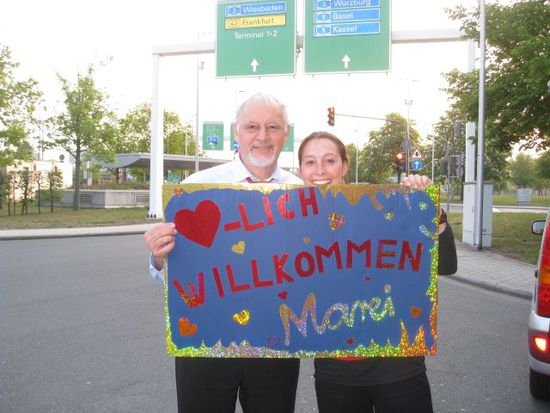 3 Wiesbaden
43 Frankfurt
Terminal 1 - 2
3 Würzburg
5 Basel
5 Kassel
-LICH
WILLKOMMEN
Marei